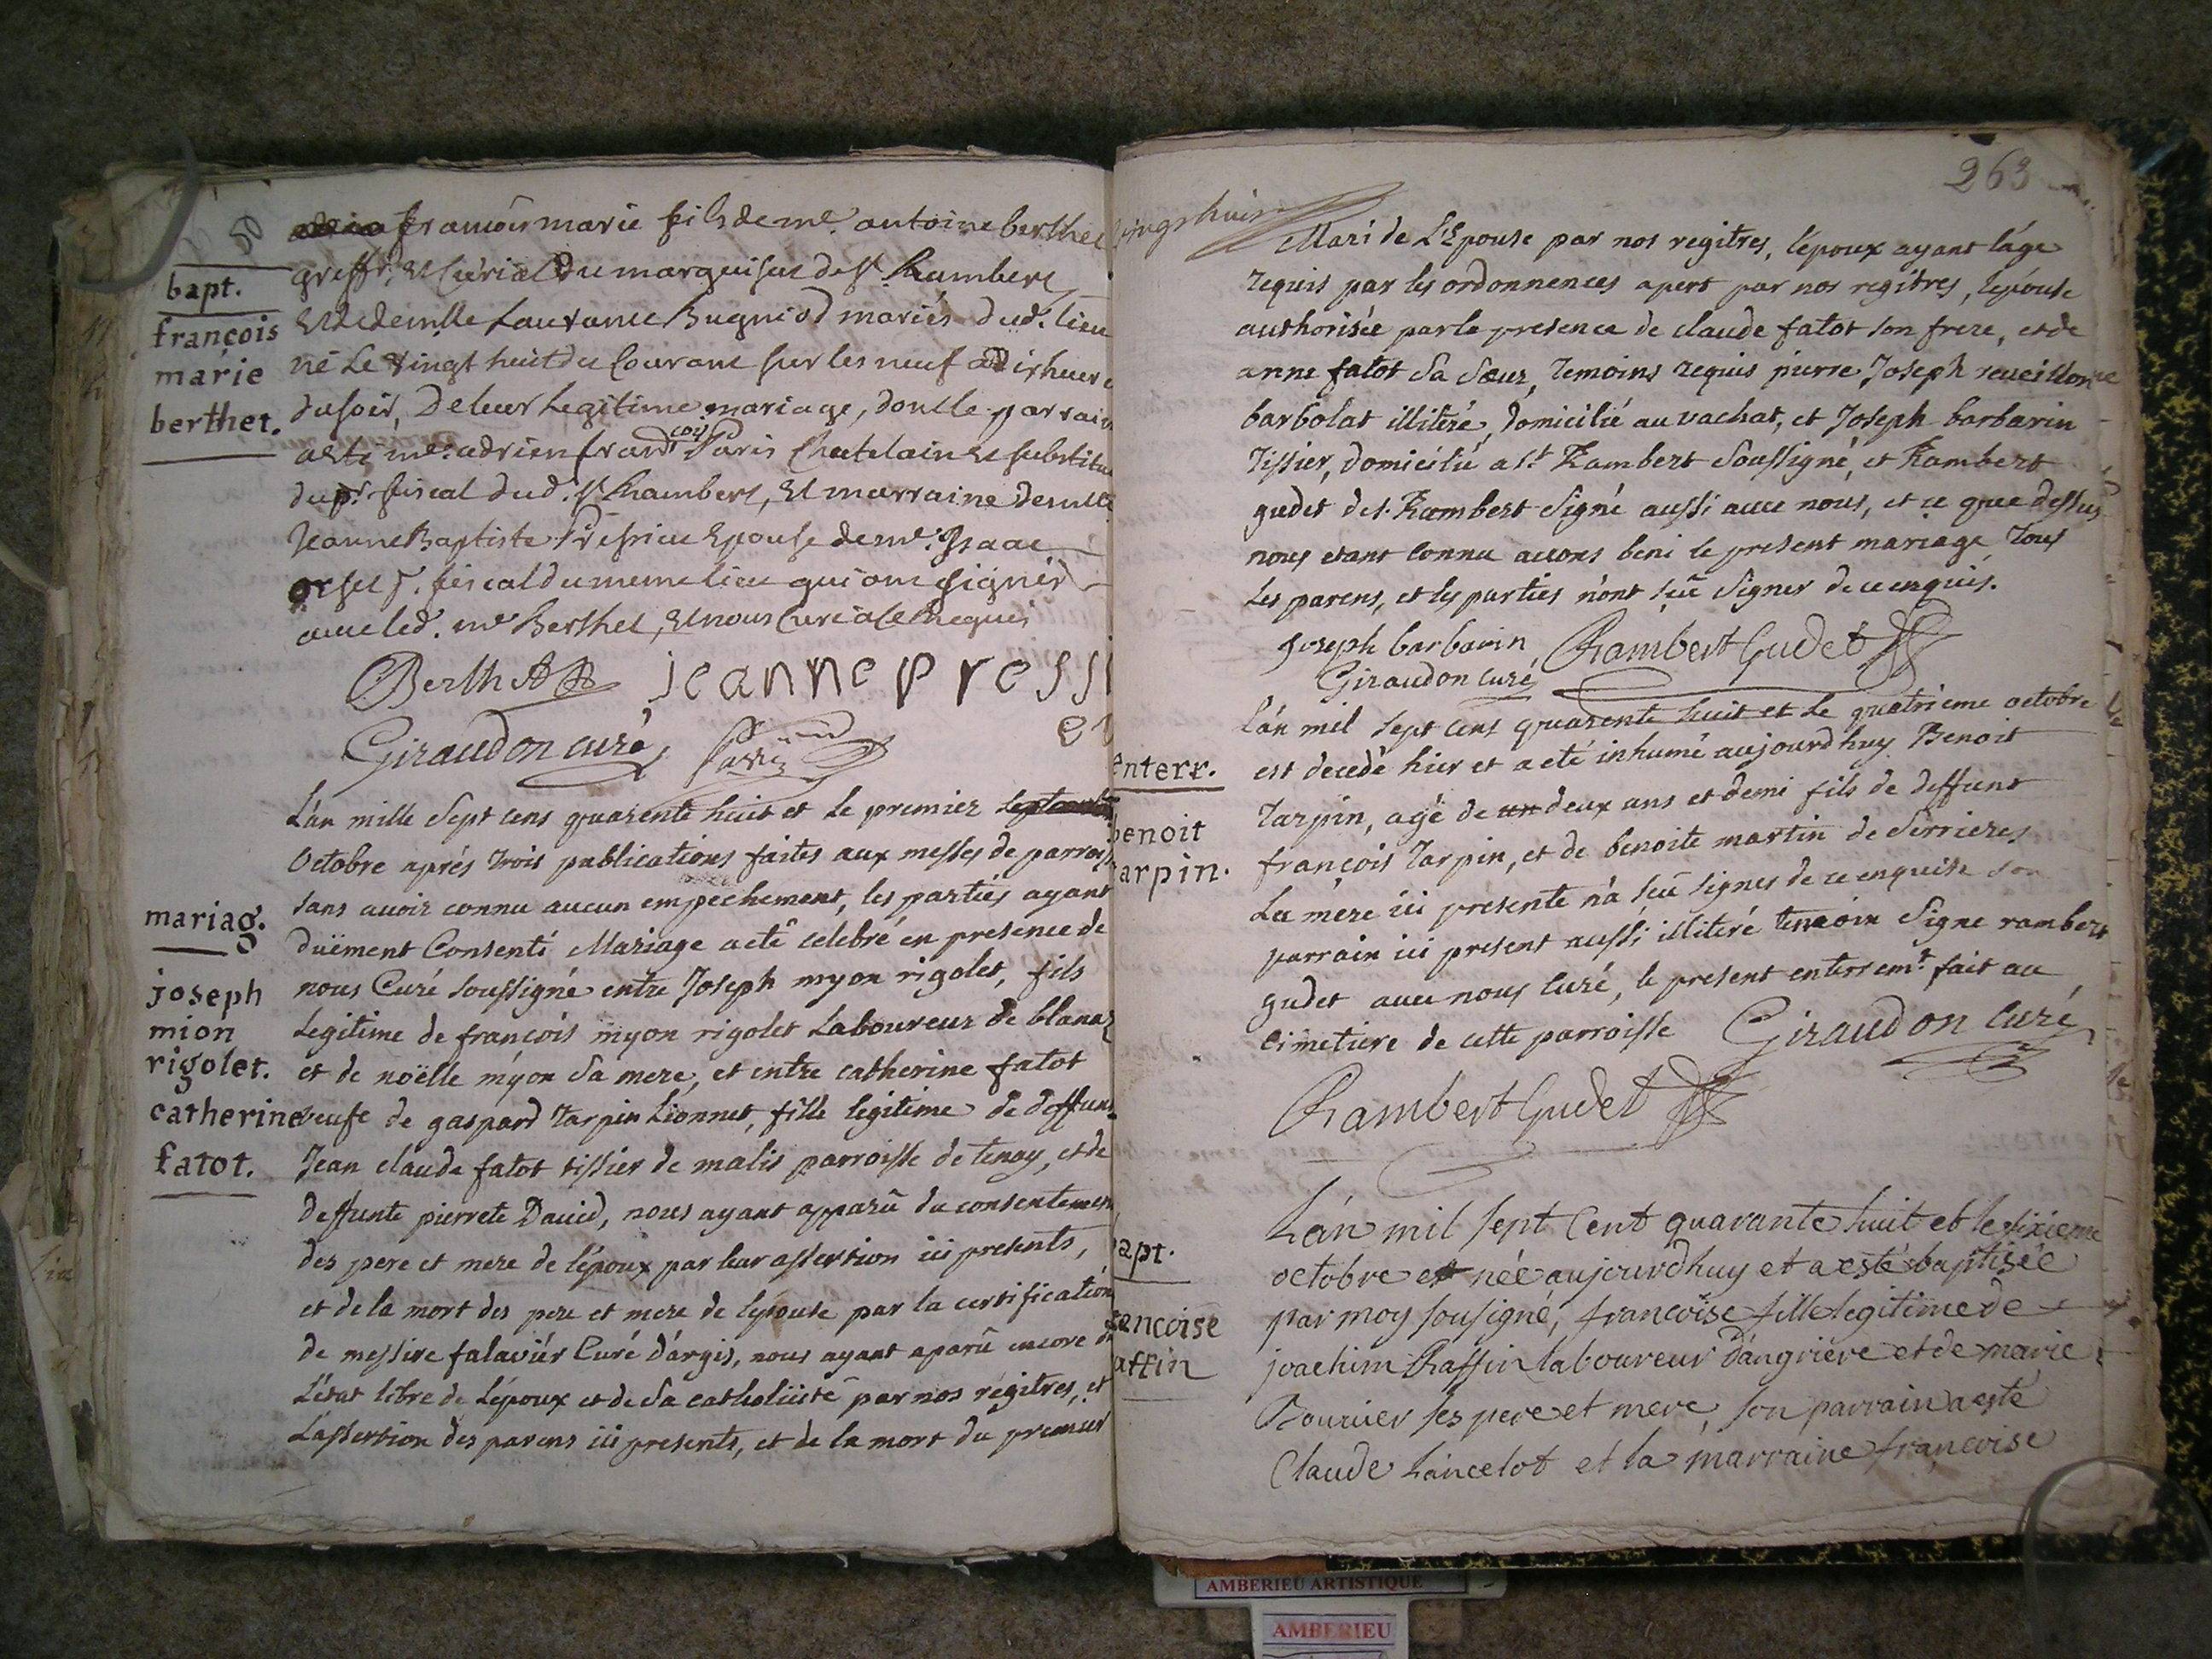 50
bapt.
françois
marie
berthet.
françois marie fils de me. antoine berthet
greffr. et curial du marquisat de st. Rambert
et de demlle Laurance Bugniod mariés dud. lieu
né le vingt huit du courant sur les neuf a dix heures
du soir, de leur legitime mariage, dont le parrain
a esté me. adrien françois Paris Chatelain et substitut
du pr. fiscal dud. st Rambert, et marraine demlle
Jeanne Baptiste Pressieu Epouse de me. Isaac
orset pr. fiscal du meme lieu qui ont signés
avec led. me Berthet, et nous curé a ce requis
Berthet jeanne pressi
Giraudon curé, Paris
mariag.
joseph
mion
rigolet.
catherine
fatot.
L'an mille sept cens quarente huit et le premier septembre
Octobre aprés trois publications faites aux messes de parroisse
sans avoir connu aucun empechement, les parties ayant
duëment Consenti Mariage a eté celebré en presence de
nous Curé soussigné entre Joseph myon rigolet, fils
Legitime de françois myon rigolet Laboureur de blanaz
et de noëlle myon sa mere, et entre catherine fatot
veufe de gaspard Tarpin Lionnet, fille legitime de deffunt
Jean claude fatot tissier de malis parroisse de tenay, et de
deffunte pierrete David, nous ayant apparû du consentement
des pere et mere de l'époux par leur assertion ici presents,
et de la mort des pere et mere de lepouse par la certification
de messire falavier Curé d'argis, nous ayant aparû encore de
L'état libre de L'époux et de sa catholicité par nos régitres, et
L'assertion des parens ici presents, et de la mort du premier
263
Mari de L'Epouse par nos regitres, l'époux ayant l'age
requis par les ordonnences apert par nos regitres, lepouse
authorisée par la presence de claude fatot son frere, et de
anne fatot sa sœur, Temoins requis pierre Joseph reveillon
barbolat illiteré, domicilié au vachat, et Joseph barbarin
Tissier, domicilié a st Rambert soussigné, et Rambert
gudet de s. Rambert signé aussi avec nous, et ce que dessus
nous etant connu avons beni le present mariage, Tous
Les parens, et les parties n'ont sçu signer de ce enquis.
Joseph barbarin Rambert Gudet
Giraudon curé
enterr.
benoit
arpin.
L'an mil sept cens quarente huit et le quatrieme octobre
est decedé hier et a eté inhumé aujourdhuy Benoit
Tarpin, agé de un deux ans et demi fils de deffunt
françois Tarpin, et de benoite martin de Serrieres
La mere ici presente n'a sçu signer de ce enquise son
parrain ici present aussi illiteré temoin signe rambert
gudet avec nous curé, le present enterremt. fait au
cimetiere de cette parroisse Giraudon curé
Rambert Gudet
apt.
ancoise
affin
L'an mil sept Cent quarante huit et le sixieme
octobre est née aujourdhuy et a esté baptisée
par moy sousigné, francoise fille legitime de
joachim Raffin laboureur d'angriere et de marie
Bouvier ses pere et mere, son parrain a esté
Claude Lancelot et la marraine françoise
AMBERIEU ARTISTIQUE
AMBERIEU